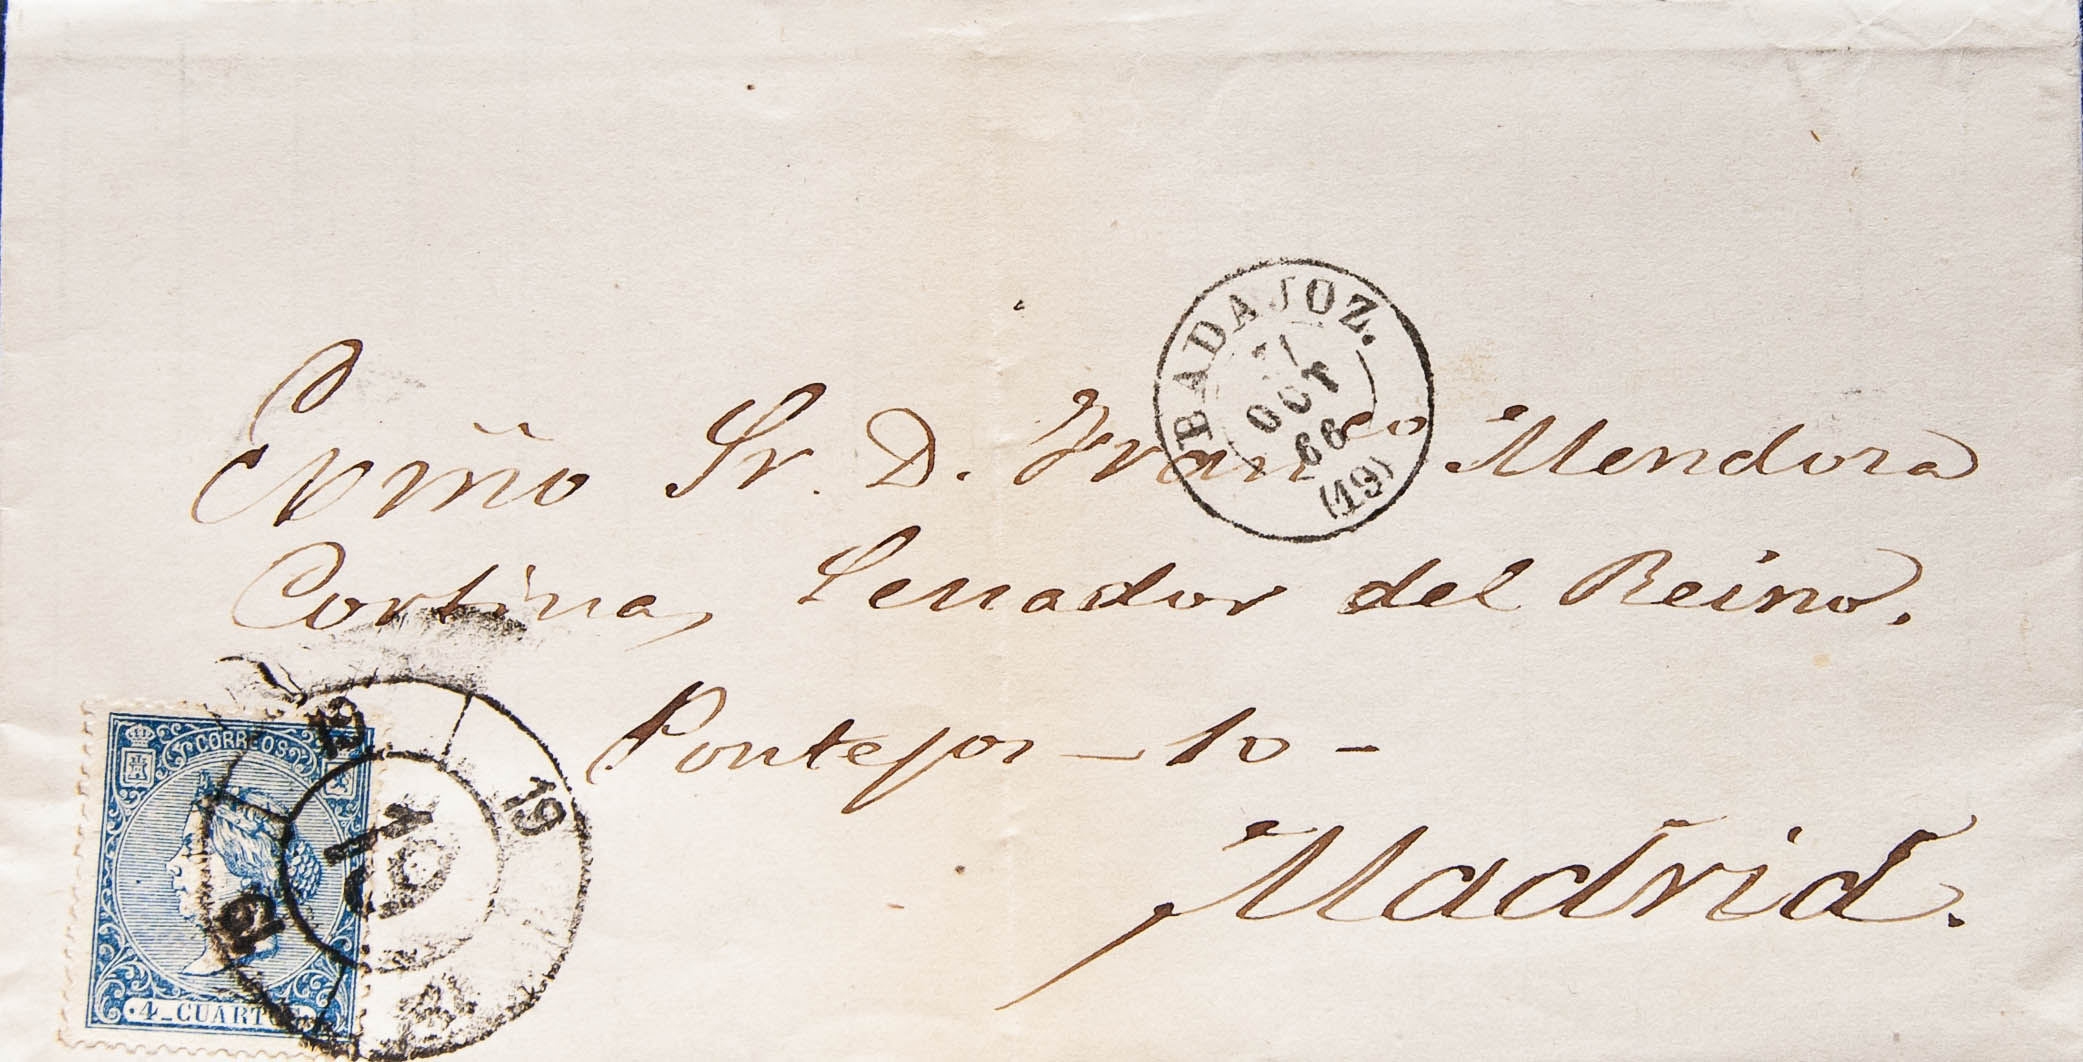 BADAJOZ.
OCT
66
(49)
Exmo Sr. D. Franco Mendoza
Cortina, Senador del Reino.
Pontejos - 10 -
Madrid.
CORREOS
4 CUARTOS
19
19
19